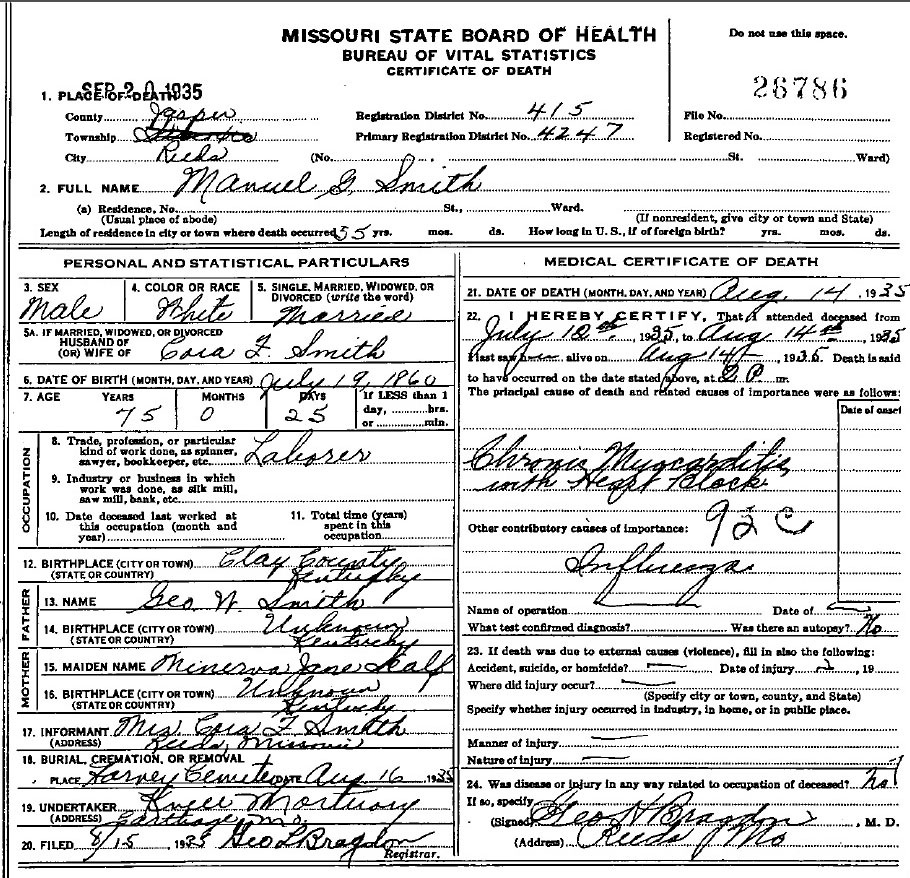 MISSOURI STATE BOARD OF HEALTH
BUREAU OF VITAL STATISTICS
CERTIFICATE OF DEATH
Do not use this space.
26786
SEP 20 1935
1. PLACE OF DEATH
County Jasper Registration District No. 415 File No.
Township Primary Registration District No. 4247 Registered No.
City Reeds (No. St. Ward)
2. FULL NAME Manuel G. Smith
(a) Residence, No. St., Ward.
(Usual place of abode) (If nonresident, give city or town and State)
Length of residence in city or town where death occurred 55 yrs. mos. ds. How long in U. S., if of foreign birth? yrs. mos. ds.
PERSONAL AND STATISTICAL PARTICULARS
3. SEX 4. COLOR OR RACE 5. SINGLE, MARRIED, WIDOWED, OR DIVORCED (write the word)
Male White Married
5A. IF MARRIED, WIDOWED, OR DIVORCED
HUSBAND OF
(OR) WIFE OF Cora F. Smith
6. DATE OF BIRTH (MONTH, DAY, AND YEAR) July 19, 1860
7. AGE YEARS MONTHS DAYS If LESS than 1
day, hrs.
or min.
75 0 25
OCCUPATION
8. Trade, profession, or particular
kind of work done, as spinner,
sawyer, bookkeeper, etc. Laborer
9. Industry or business in which
work was done, as silk mill,
saw mill, bank, etc.
10. Date deceased last worked at
this occupation (month and
year)
11. Total time (years)
spent in this
occupation
12. BIRTHPLACE (CITY OR TOWN) Clay County
(STATE OR COUNTRY) Kentucky
FATHER
13. NAME Geo W. Smith
14. BIRTHPLACE (CITY OR TOWN) Unknown
(STATE OR COUNTRY) Kentucky
MOTHER
15. MAIDEN NAME Minerva Jane
16. BIRTHPLACE (CITY OR TOWN) Unknown
(STATE OR COUNTRY) Kentucky
17. INFORMANT Mrs. Cora F Smith
(ADDRESS) Reeds, Missouri
18. BURIAL, CREMATION, OR REMOVAL
PLACE Cemetery DATE Aug 16 1935
19. UNDERTAKER Knell Mortuary
(ADDRESS) Carthage, Mo.
20. FILED 8/15 1935 Geo L Bragdon
Registrar.
MEDICAL CERTIFICATE OF DEATH
21. DATE OF DEATH (MONTH, DAY, AND YEAR) Aug. 14 1935
22. I HEREBY CERTIFY, That I attended deceased from
July 10th, 1935, to Aug 14th, 1935
I last saw him alive on Aug 14th, 1935. Death is said
to have occurred on the date stated above, at 2 P m.
The principal cause of death and related causes of importance were as follows:
Date of onset
Chronic Myocarditis
with Heart Block
92c
Other contributory causes of importance:
Influenza
Name of operation Date of
What test confirmed diagnosis? Was there an autopsy? No
23. If death was due to external causes (violence), fill in also the following:
Accident, suicide, or homicide? Date of injury 19
Where did injury occur?
(Specify city or town, county, and State)
Specify whether injury occurred in industry, in home, or in public place.
Manner of injury
Nature of injury
24. Was disease or injury in any way related to occupation of deceased? no
If so, specify
(Signed) Geo H Bragdon, M. D.
(Address) Reeds Mo